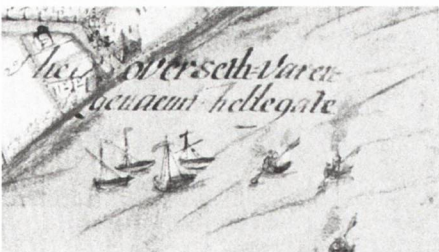 het overseth-Varen
genaemt hellegate